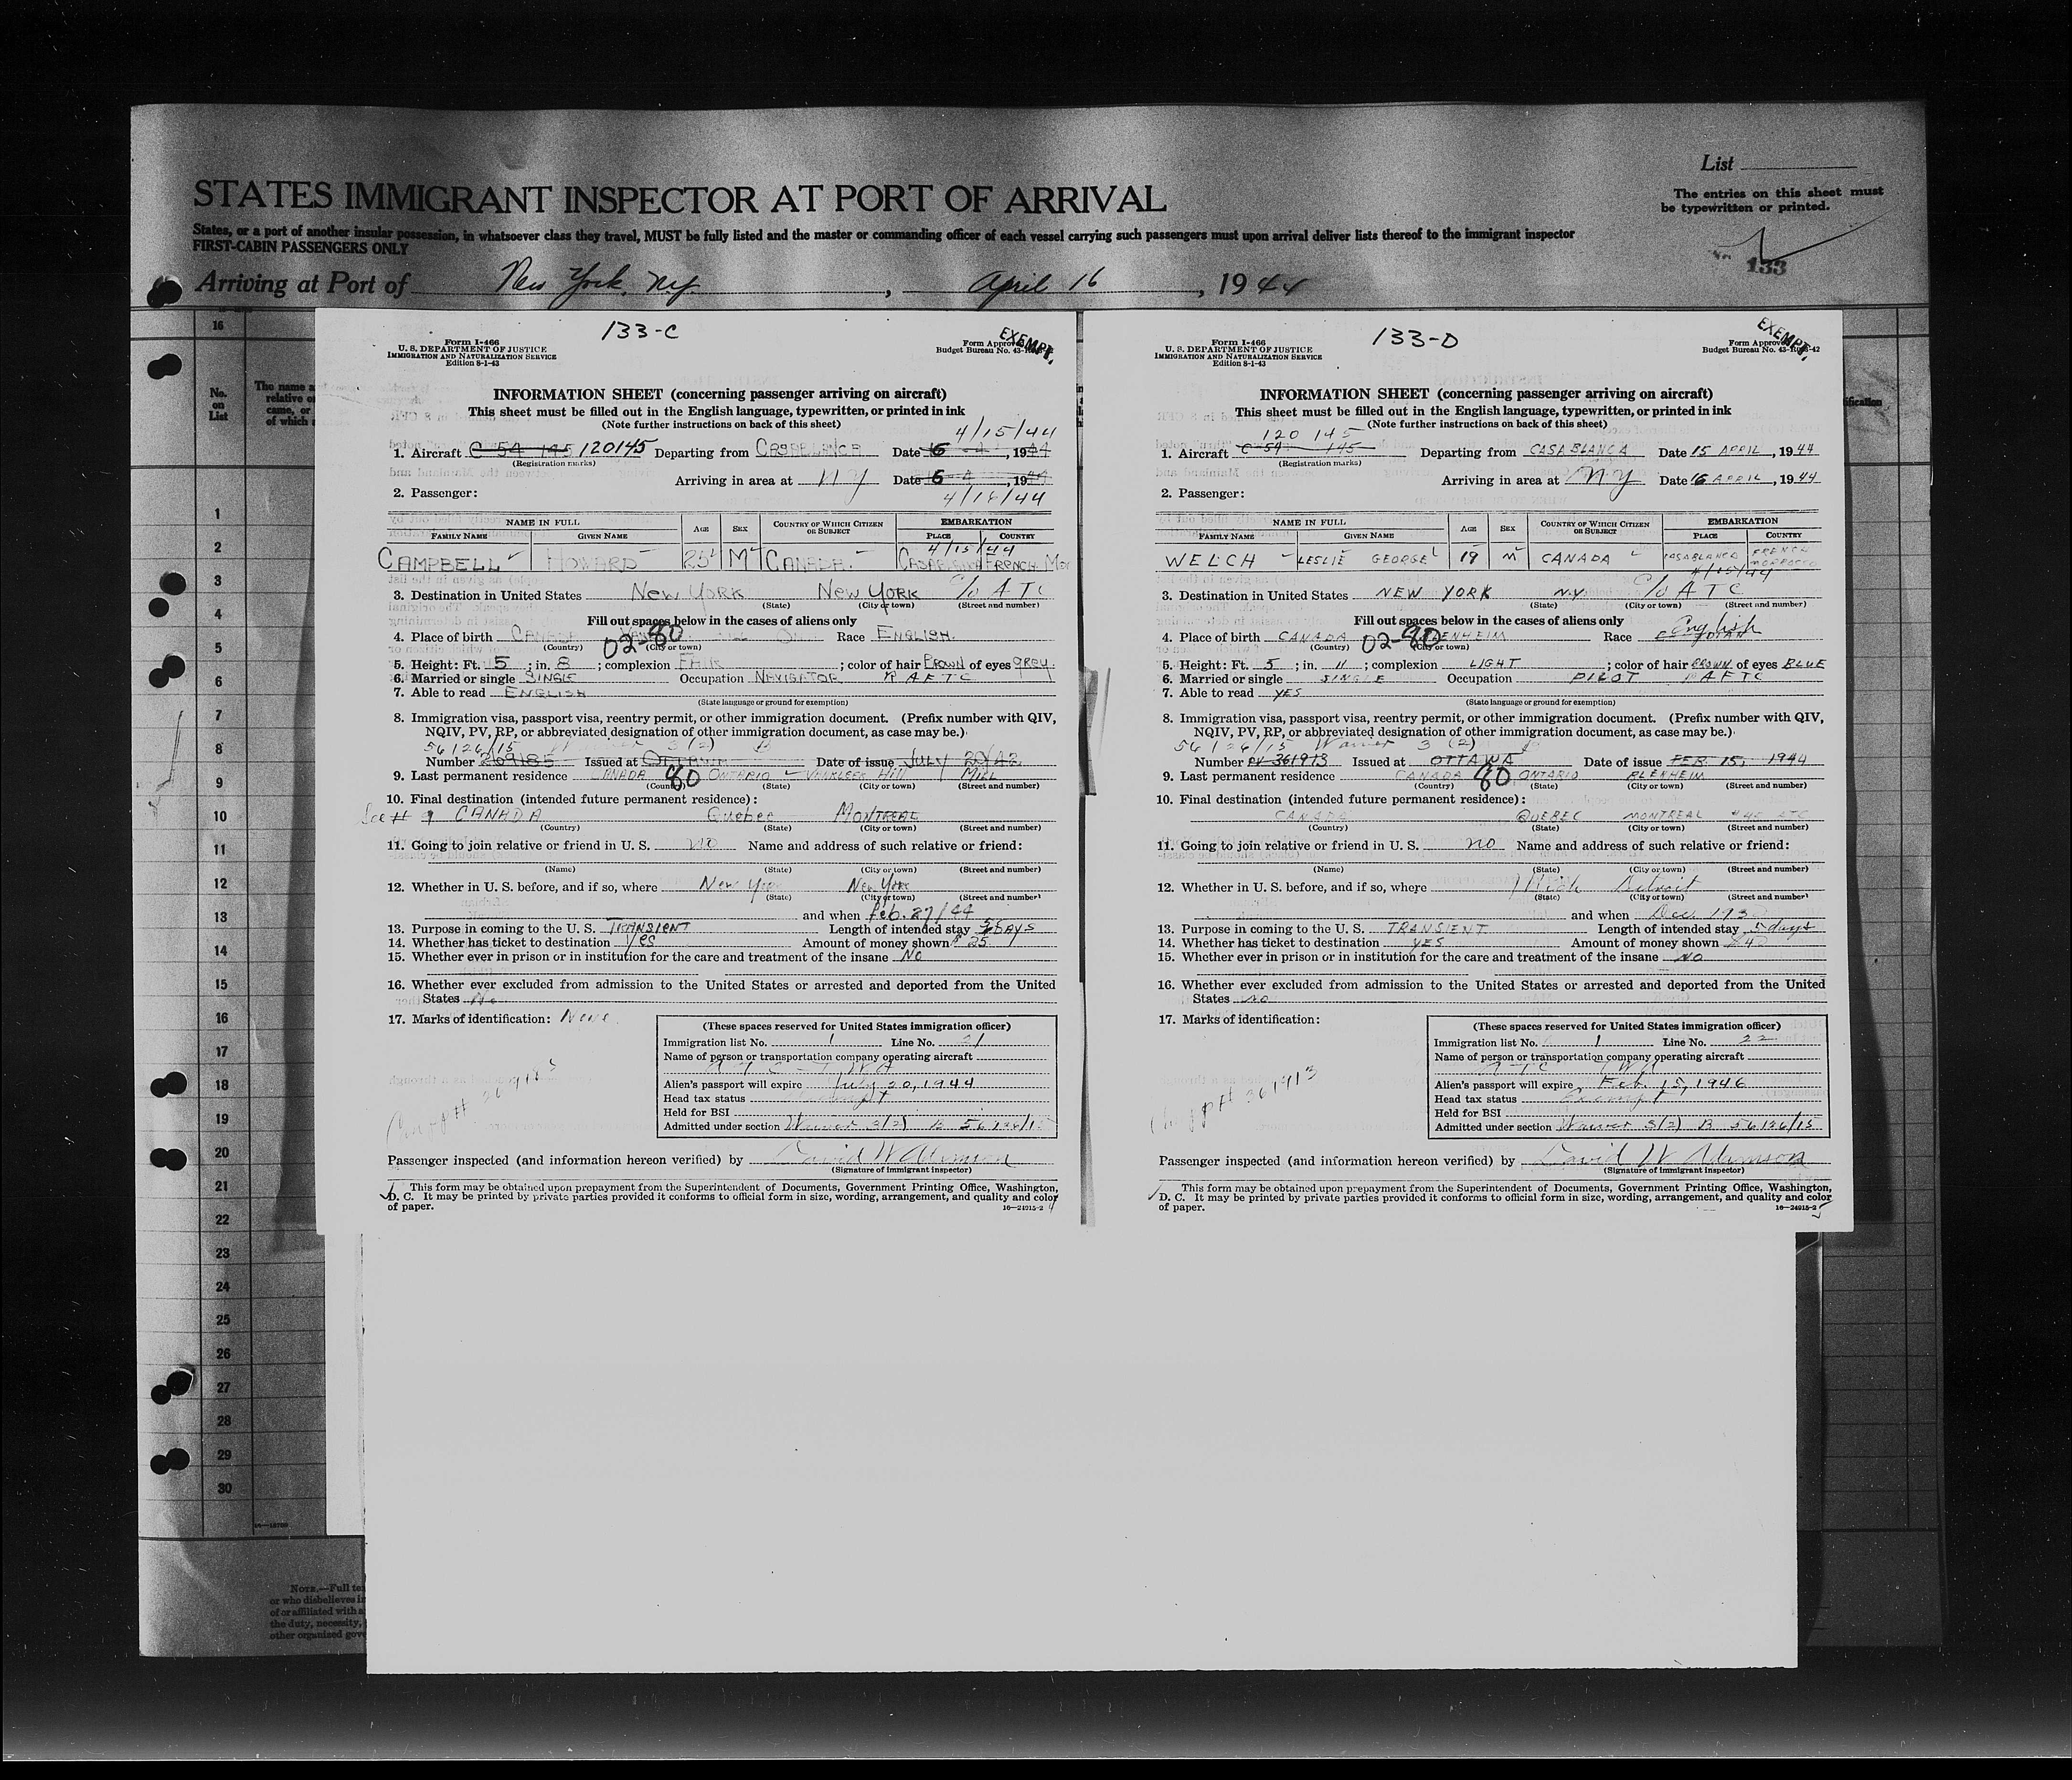 List
STATES IMMIGRANT INSPECTOR AT PORT OF ARRIVAL
The entries on this sheet must
be typewritten or printed.
States, or a port of another insular possession, in whatsoever class they travel, MUST be fully listed and the master or commanding officer of each vessel carrying such passengers must upon arrival deliver lists thereof to the immigrant inspector
FIRST-CABIN PASSENGERS ONLY
133
Arriving at Port of New York, N.Y. , April 16 , 1944
16
No.
on
List
The name a
relative o
came, or
of which a
1
2
3
4
5
6
7
8
9
10
11
12
13
14
15
16
17
18
19
20
21
22
23
24
25
26
27
28
29
30
NOTE.—Full te
or who disbelieves in
of or affiliated with a
the duty, necessity,
other organized gove
133-C
Form I-466
U. S. DEPARTMENT OF JUSTICE
IMMIGRATION AND NATURALIZATION SERVICE
Edition 8-1-43
EXEMPT.
Form Approv
Budget Bureau No. 43-R -42
INFORMATION SHEET (concerning passenger arriving on aircraft)
This sheet must be filled out in the English language, typewritten, or printed in ink
(Note further instructions on back of this sheet)
4/15/44
1. Aircraft C-54 145 120145 Departing from CASABLANCA Date 15 , 1944
(Registration marks)
Arriving in area at N Y Date 16 , 1944
4/16/44
2. Passenger:
NAME IN FULL AGE SEX COUNTRY OF WHICH CITIZEN OR SUBJECT EMBARKATION
FAMILY NAME GIVEN NAME PLACE COUNTRY
4/15/44
CAMPBELL HOWARD 25 M CANADA CASABLANCA FRENCH Mor
3. Destination in United States NEW YORK NEW YORK C/o A T C
(State) (City or town) (Street and number)
Fill out spaces below in the cases of aliens only
4. Place of birth CANADA 02-80 Race ENGLISH.
(Country) (City or town)
5. Height: Ft. 5 ; in. 8 ; complexion FAIR ; color of hair BROWN of eyes GREY.
6. Married or single SINGLE Occupation NAVIGATOR R A F T C
7. Able to read ENGLISH
(State language or ground for exemption)
8. Immigration visa, passport visa, reentry permit, or other immigration document. (Prefix number with QIV,
NQIV, PV, RP, or abbreviated designation of other immigration document, as case may be.)
56126/15 Waiver 3(2) B
Number 269185 Issued at OTTAWA Date of issue JULY 20/42
9. Last permanent residence CANADA 80 ONTARIO VANKLEEK HILL MILL
(Country) (State) (City or town) (Street and number)
10. Final destination (intended future permanent residence):
See # 9 CANADA Quebec MONTREAL
(Country) (State) (City or town) (Street and number)
11. Going to join relative or friend in U. S. no Name and address of such relative or friend:
(Name) (State) (City or town) (Street and number)
12. Whether in U. S. before, and if so, where New York New York
(State) (City or town) (Street and number)
and when Feb. 27/44
13. Purpose in coming to the U. S. TRANSIENT Length of intended stay 5 DAYS
14. Whether has ticket to destination yes Amount of money shown $ 25.
15. Whether ever in prison or in institution for the care and treatment of the insane NO
16. Whether ever excluded from admission to the United States or arrested and deported from the United
States No
17. Marks of identification: None.
(These spaces reserved for United States immigration officer)
Immigration list No. 1 Line No. 21
Name of person or transportation company operating aircraft
A T C - T W A
Alien's passport will expire July 20, 1944
Head tax status Exempt
Held for BSI
Admitted under section Waiver 3(2) B 56126/15
Passenger inspected (and information hereon verified) by David W Adamson
(Signature of immigrant inspector)
This form may be obtained upon prepayment from the Superintendent of Documents, Government Printing Office, Washington,
D. C. It may be printed by private parties provided it conforms to official form in size, wording, arrangement, and quality and color
of paper. 16—24915-2
133-D
Form I-466
U. S. DEPARTMENT OF JUSTICE
IMMIGRATION AND NATURALIZATION SERVICE
Edition 8-1-43
EXEMPT.
Form Approv
Budget Bureau No. 43-R -42
INFORMATION SHEET (concerning passenger arriving on aircraft)
This sheet must be filled out in the English language, typewritten, or printed in ink
(Note further instructions on back of this sheet)
120 145
1. Aircraft C-54 145 Departing from CASABLANCA Date 15 APRIL , 1944
(Registration marks)
Arriving in area at NY Date 16 APRIL , 1944
2. Passenger:
NAME IN FULL AGE SEX COUNTRY OF WHICH CITIZEN OR SUBJECT EMBARKATION
FAMILY NAME GIVEN NAME PLACE COUNTRY
WELCH LESLIE GEORGE 19 M CANADA CASABLANCA FRENCH MORROCCO
4/15/44
3. Destination in United States NEW YORK N.Y C/o A T C
(State) (City or town) (Street and number)
Fill out spaces below in the cases of aliens only
4. Place of birth CANADA 02-80 BLENHEIM Race English
(Country) (City or town)
5. Height: Ft. 5 ; in. 11 ; complexion LIGHT ; color of hair BROWN of eyes BLUE
6. Married or single SINGLE Occupation PILOT R A F T C
7. Able to read YES
(State language or ground for exemption)
8. Immigration visa, passport visa, reentry permit, or other immigration document. (Prefix number with QIV,
NQIV, PV, RP, or abbreviated designation of other immigration document, as case may be.)
56126/15 Waiver 3 (2)
Number PV 361913 Issued at OTTAWA Date of issue FEB 15, 1944
9. Last permanent residence CANADA 80 ONTARIO BLENHEIM
(Country) (State) (City or town) (Street and number)
10. Final destination (intended future permanent residence):
CANADA QUEBEC MONTREAL
(Country) (State) (City or town) (Street and number)
11. Going to join relative or friend in U. S. no Name and address of such relative or friend:
(Name) (State) (City or town) (Street and number)
12. Whether in U. S. before, and if so, where Mich Detroit
(State) (City or town) (Street and number)
and when Dec. 193
13. Purpose in coming to the U. S. TRANSIENT Length of intended stay 5 days
14. Whether has ticket to destination YES Amount of money shown $40
15. Whether ever in prison or in institution for the care and treatment of the insane NO
16. Whether ever excluded from admission to the United States or arrested and deported from the United
States no
17. Marks of identification:
(These spaces reserved for United States immigration officer)
Immigration list No. 1 Line No. 22
Name of person or transportation company operating aircraft
A T C T W A
Alien's passport will expire Feb. 15, 1946
Head tax status Exempt
Held for BSI
Admitted under section Waiver 3(2) B 56126/15
361913
Passenger inspected (and information hereon verified) by David W Adamson
(Signature of immigrant inspector)
This form may be obtained upon prepayment from the Superintendent of Documents, Government Printing Office, Washington,
D. C. It may be printed by private parties provided it conforms to official form in size, wording, arrangement, and quality and color
of paper. 16—24915-2